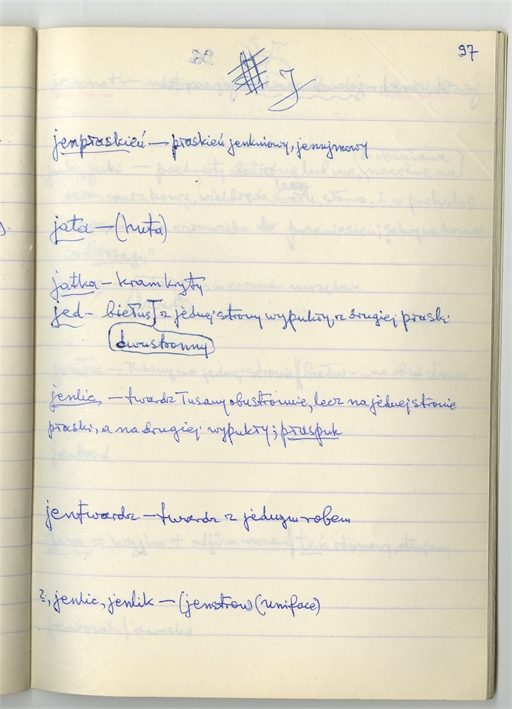 97
J
jenpłaskień — płaskień jenkniowy, jenujmowy
jata — (huta)
jatka — kram kryty
jed- biełust z jednej strony wypukły, z drugiej płaski
dwustronny
jenlic, — twardz łusany obustronnie, lecz na jednej stronie
płaski, a na drugiej wypukły; płaspuk
jentwardz — twardz z jednym robem
?, jenlic, jenlik — (jenstrow (uniface)